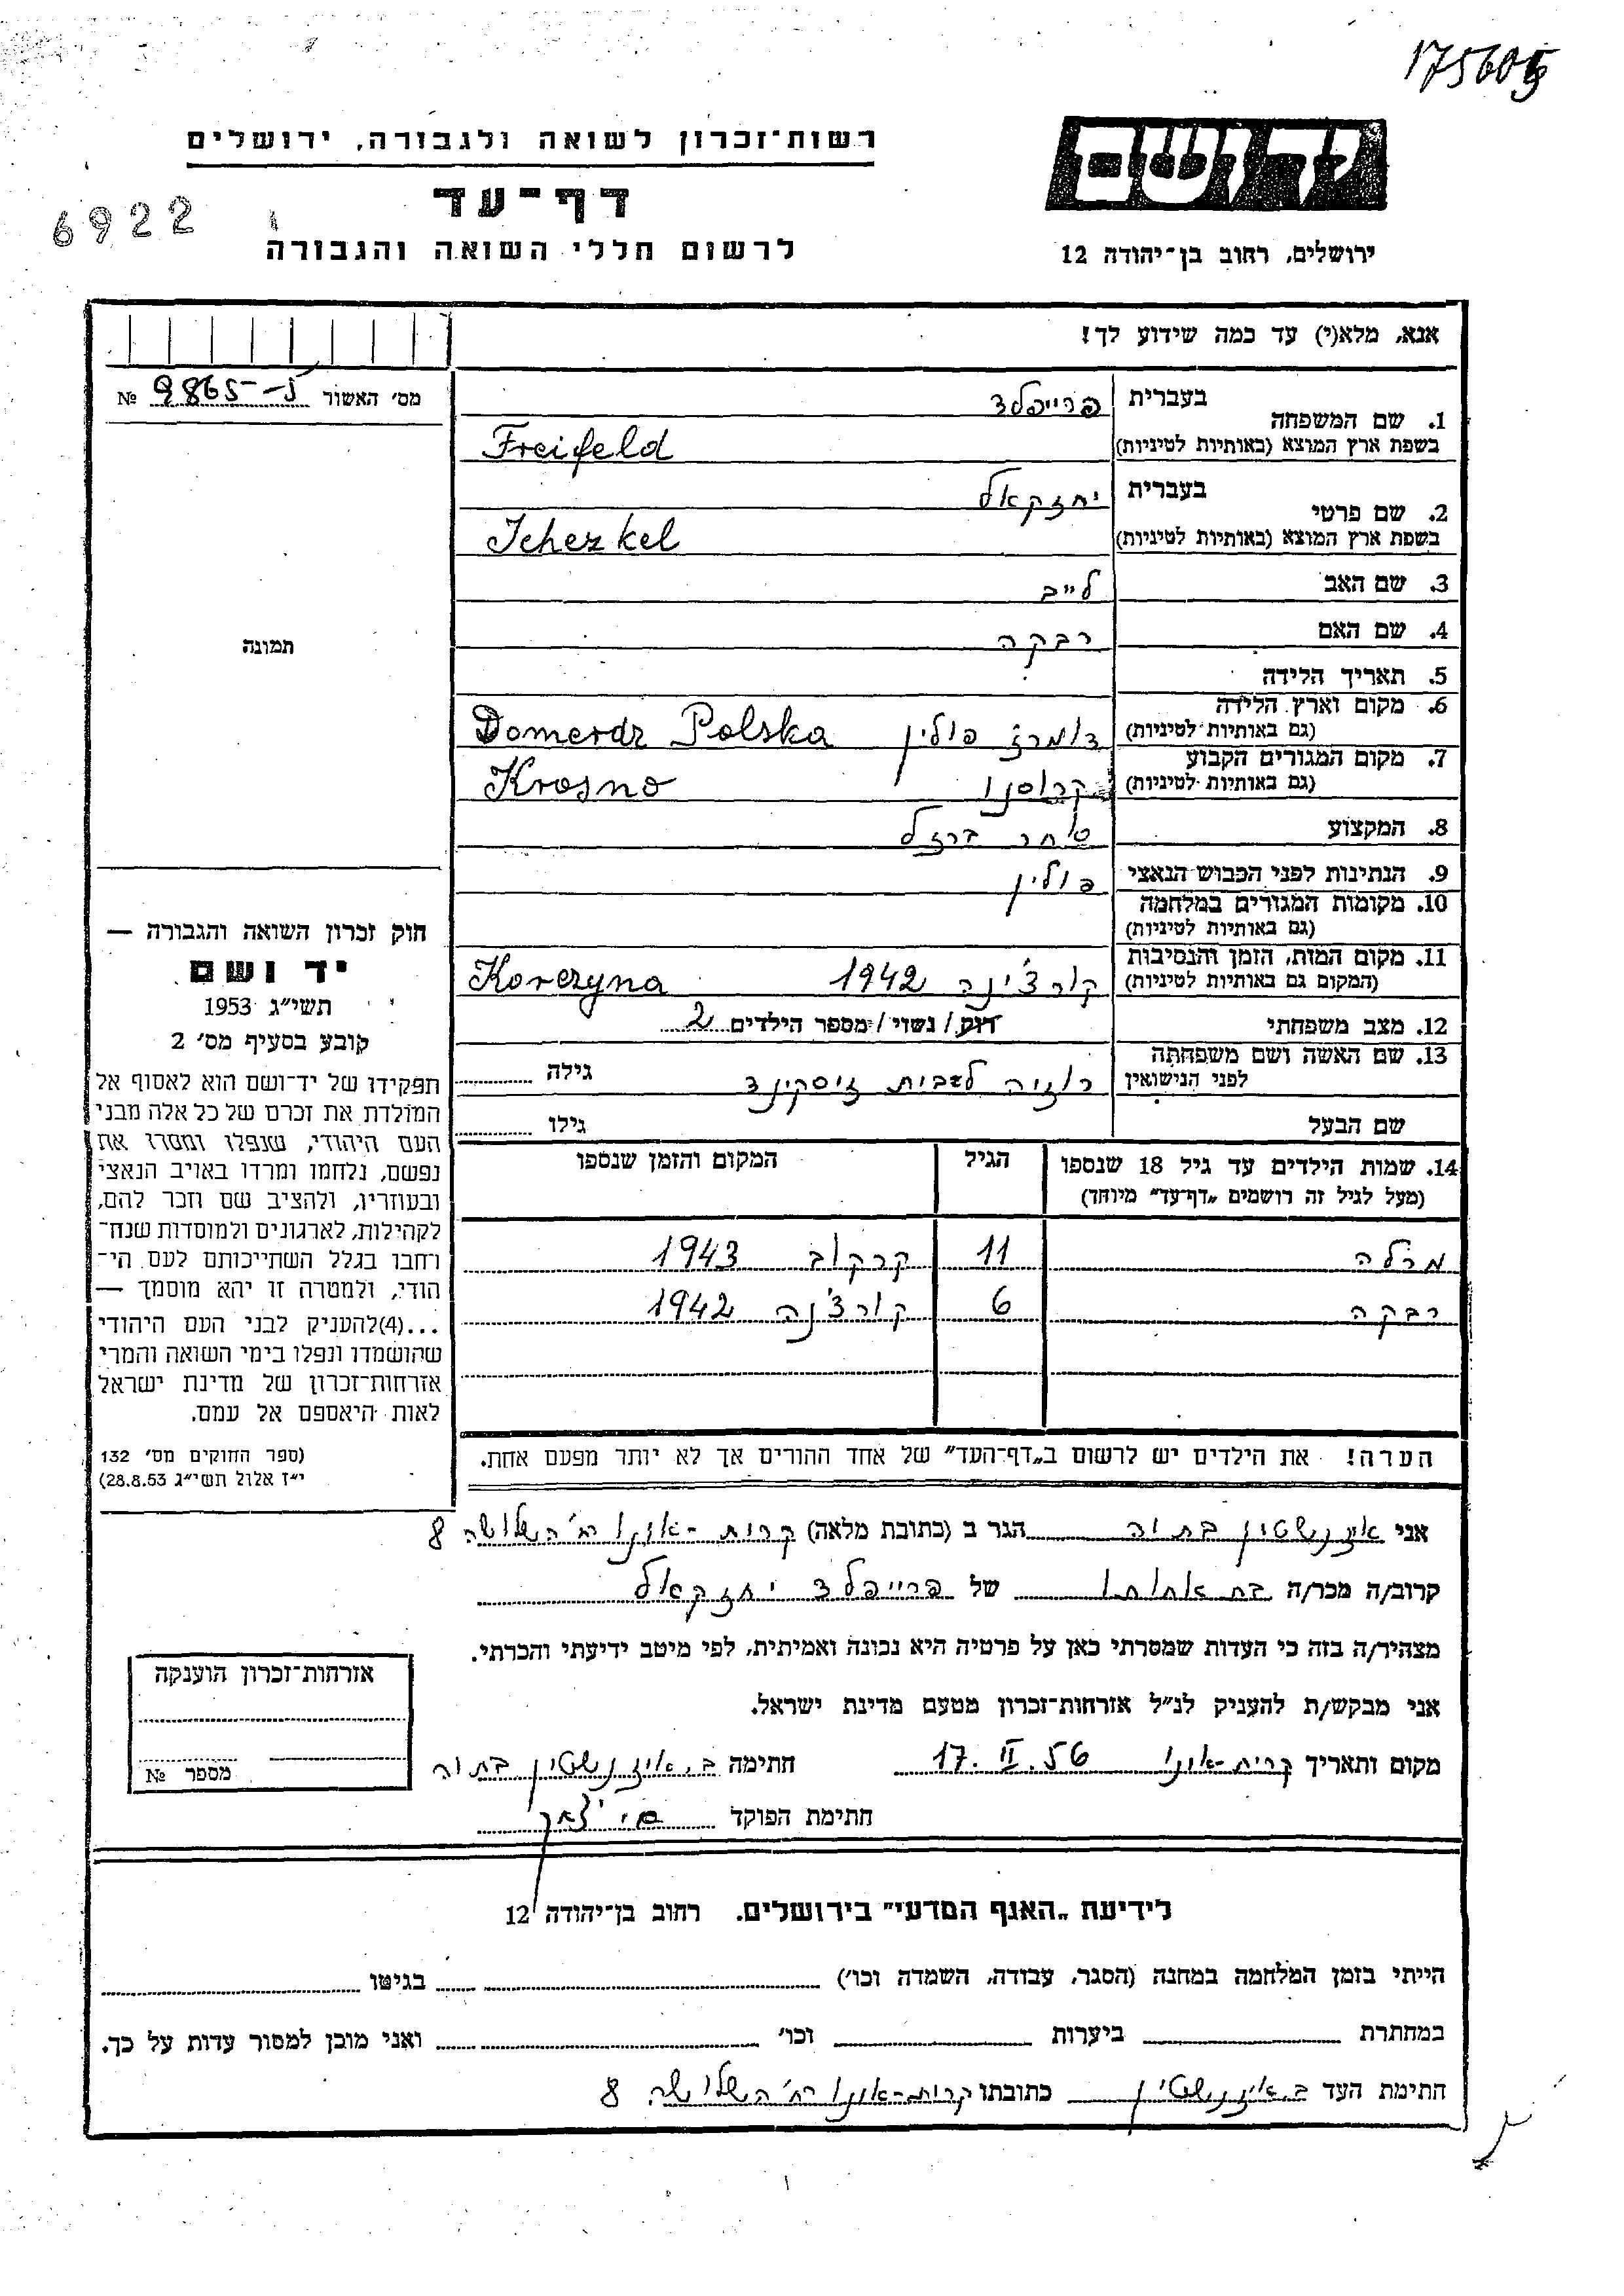 175605
יד ושם
ירושלים, רחוב בן־יהודה 12
רשות־זכרון לשואה ולגבורה, ירושלים
דף־עד
לרשום חללי השואה והגבורה
6922
אנא, מלא(י) עד כמה שידוע לך!
מס׳ האשור 9865 №
1. שם המשפחה
בעברית פרייפלד
בשפת ארץ המוצא (באותיות לטיניות) Freifeld
2. שם פרטי
בעברית יחזקאל
בשפת ארץ המוצא (באותיות לטיניות) Jchezkel
3. שם האב לייב
4. שם האם רבקה
5. תאריך הלידה
6. מקום וארץ הלידה
(גם באותיות לטיניות) דומרדז פולין Domerdz Polska
7. מקום המגורים הקבוע
(גם באותיות לטיניות) קרוסנו Krosno
8. המקצוע סוחר ברזל
9. הנתינות לפני הכבוש הנאצי פולין
10. מקומות המגורים במלחמה
(גם באותיות לטיניות)
11. מקום המות, הזמן והנסיבות
(המקום גם באותיות לטיניות) קורצ׳ינה 1942 Korczyna
12. מצב משפחתי רווק / נשוי / מספר הילדים 2
13. שם האשה ושם משפחתה
לפני הנישואין רוזיה לבית זיסקינד גילה
שם הבעל גילו
14. שמות הילדים עד גיל 18 שנספו הגיל המקום והזמן שנספו
(מעל לגיל זה רושמים „דף־עד״ מיוחד)
מרלה 11 קרקוב 1943
רבקה 6 קורצ׳נה 1942
הערה! את הילדים יש לרשום ב„דף־העד״ של אחד ההורים אך לא יותר מפעם אחת.
תמונה
חוק זכרון השואה והגבורה —
יד ושם
תשי״ג 1953
קובע בסעיף מס׳ 2
תפקידו של יד־ושם הוא לאסוף אל
המולדת את זכרם של כל אלה מבני
העם היהודי, שנפלו ומסרו את
נפשם, נלחמו ומרדו באויב הנאצי
ובעוזריו, ולהציב שם וזכר להם,
לקהילות, לארגונים ולמוסדות שנח־
רחבו בגלל השתייכותם לעם הי־
הודי, ולמטרה זו יהא מוסמך —
...(4)להעניק לבני העם היהודי
שהושמדו ונפלו בימי השואה והמרי
אזרחות־זכרון של מדינת ישראל
לאות היאספם אל עמם.
(ספר החוקים מס׳ 132
י״ז אלול תשי״ג 28.8.53)
אני איזנשטין בתיה הגר ב (כתובת מלאה) קרית-אונו רח׳ השלושה 8
קרוב/ה מכר/ה בת אחותו של פרייפלד יחזקאל
מצהיר/ה בזה כי העדות שמסרתי כאן על פרטיה היא נכונה ואמיתית, לפי מיטב ידיעתי והכרתי.
אני מבקש/ת להעניק לנ״ל אזרחות־זכרון מטעם מדינת ישראל.
מקום ותאריך קרית-אונו 17. II. 56 חתימה ב. איזנשטין בתיה
חתימת הפוקד
אזרחות־זכרון הוענקה
מספר №
לידיעת „האגף המדעי״ בירושלים. רחוב בן־יהודה 12
הייתי בזמן המלחמה במחנה (הסגר, עבודה, השמדה וכו׳) בגיטו
במחתרת ביערות וכו׳ ואני מוכן למסור עדות על כך.
חתימת העד ב. איזנשטין כתובתו קרית-אונו רח׳ השלושה 8